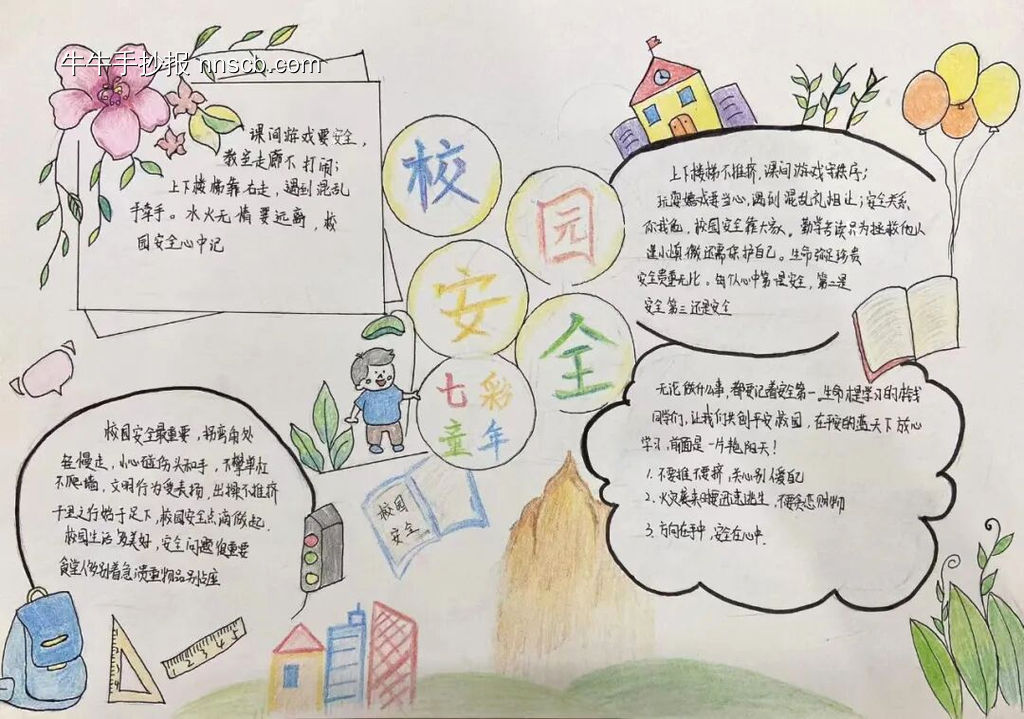 牛牛手抄报 nnscb.com
校园安全
七彩童年
课间游戏要安全，
教室走廊不打闹；
上下楼梯靠右走，遇到混乱
手牵手。水火无情要远离，校
园安全心中记
上下楼梯不推挤，课间游戏守秩序；
玩耍嬉戏要当心，遇到混乱劝阻止；安全关系
你我他，校园安全靠大家。勤学苦读只为拯救他人
还需保护自己。生命弥足珍贵
安全贵重无比。每个人心中第一是安全，第二是
安全第三还是安全
校园安全最重要，拐弯角处
轻慢走，小心碰伤头和手，不攀单杠
不爬墙，文明行为受表扬，出操不推挤
千里之行始于足下，校园安全点滴做起．
校园生活多美好，安全问题很重要
食堂人多别着急贵重物品别占座
校园
安全
无论做什么事，都要记着安全第一，生命是学习的
同学们，让我们共创平安校园，在平安的蓝天下放心
学习，前面是一片艳阳天！
1．不要推不要挤，关心别人爱自己
2．火灾袭来时要迅速逃生，不要贪恋财物
3．方向在手中，安全在心中．
1 2 3 4 5